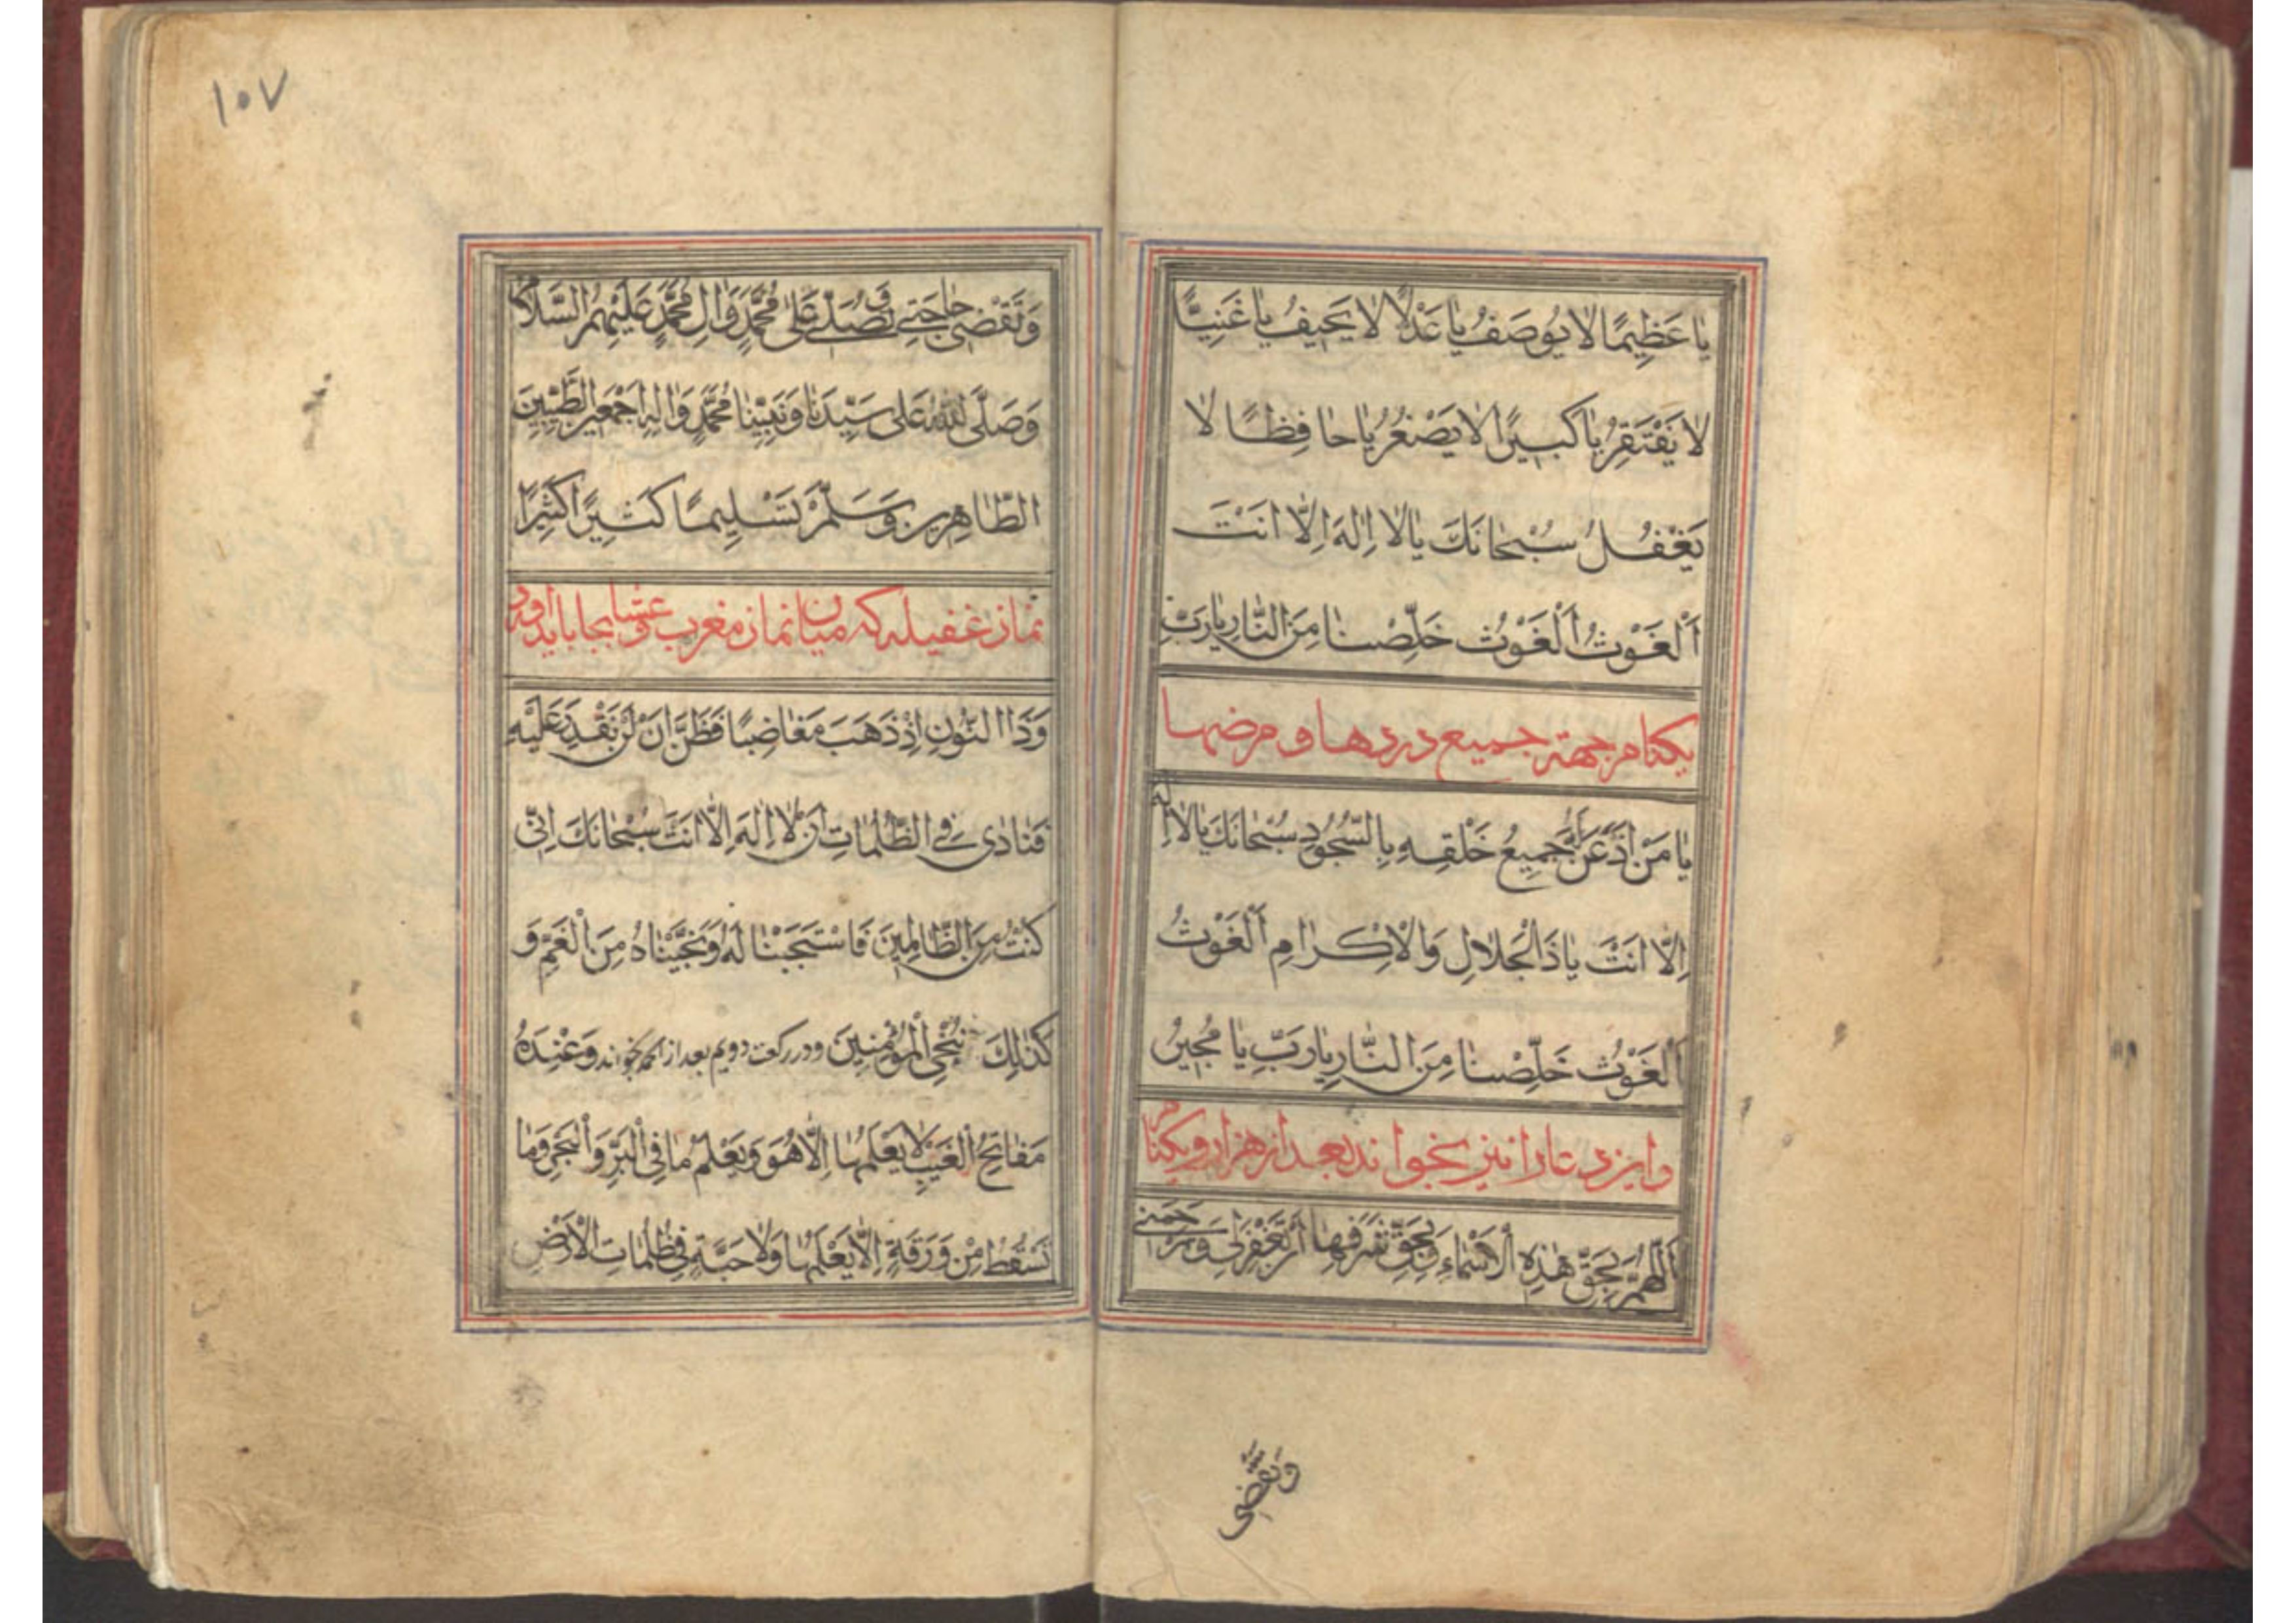 يٰا عَظِيمًا لٰا يُوصَفُ يٰا عَدْلًا لٰا يَحِيفُ يٰا غَنِيًّا
لٰا يَفْتَقِرُ يٰا كَبِيرًا لٰا يَصْغُرُ يٰا حٰافِظًا لٰا
يَغْفُلُ سُبْحٰانَكَ يٰا لٰا اِلٰهَ اِلّٰا اَنْتَ
اَلْغَوْثُ اَلْغَوْثُ خَلِّصْنٰا مِنَ النّٰارِ يٰا رَبِّ
يكنام جهة جميع دردها و مرضها
يٰا مَنْ اَذْعَنَ لَهُ جَمِيعُ خَلْقِهِ بِالسُّجُودِ سُبْحٰانَكَ يٰا لٰا اِلٰهَ
اِلّٰا اَنْتَ يٰا ذَا الْجَلٰالِ وَالْاِكْرٰامِ اَلْغَوْثُ
اَلْغَوْثُ خَلِّصْنٰا مِنَ النّٰارِ يٰا رَبِّ يٰا مُجِيرُ
و اين دعا را نيز بخواند بعد از هزار و يكنام
اَللّٰهُمَّ بِحَقِّ هٰذِهِ الْاَسْمٰاءِ وَبِحَقِّ شَرَفِهٰا اَنْ تَغْفِرَلِى وَتَرْحَمَنِى
وَتَقْضِى
١٠٧
وَتَقْضِى حٰاجَتِى وَ تُصَلِّىَ عَلٰى مُحَمَّدٍ وَاٰلِ مُحَمَّدٍ عَلَيْهِمُ السَّلٰامُ
وَصَلَّى اللّٰهُ عَلٰى سَيِّدِنٰا وَنَبِيِّنٰا مُحَمَّدٍ وَاٰلِهِ اَجْمَعِينَ الطَّيِّبِينَ
الطّٰاهِرِينَ وَسَلَّمَ تَسْلِيمًا كَثِيرًا كَثِيرًا
نماز غفيله كه ميان نماز مغرب و عشا بجا بايد آورد
وَذَا النُّونِ اِذْ ذَهَبَ مُغٰاضِبًا فَظَنَّ اَنْ لَنْ نَقْدِرَ عَلَيْهِ
فَنٰادٰى فِى الظُّلُمٰاتِ اَنْ لٰا اِلٰهَ اِلّٰا اَنْتَ سُبْحٰانَكَ اِنِّى
كُنْتُ مِنَ الظّٰالِمِينَ فَاسْتَجَبْنٰا لَهُ وَنَجَّيْنٰاهُ مِنَ الْغَمِّ وَ
كَذٰلِكَ نُنْجِى الْمُؤْمِنِينَ و در ركعت دويم بعد از حمد بخواند وَعِنْدَهُ
مَفٰاتِحُ الْغَيْبِ لٰا يَعْلَمُهٰا اِلّٰا هُوَ وَيَعْلَمُ مٰا فِى الْبَرِّ وَالْبَحْرِ وَمٰا
تَسْقُطُ مِنْ وَرَقَةٍ اِلّٰا يَعْلَمُهٰا وَلٰا حَبَّةٍ فِى ظُلُمٰاتِ الْاَرْضِ